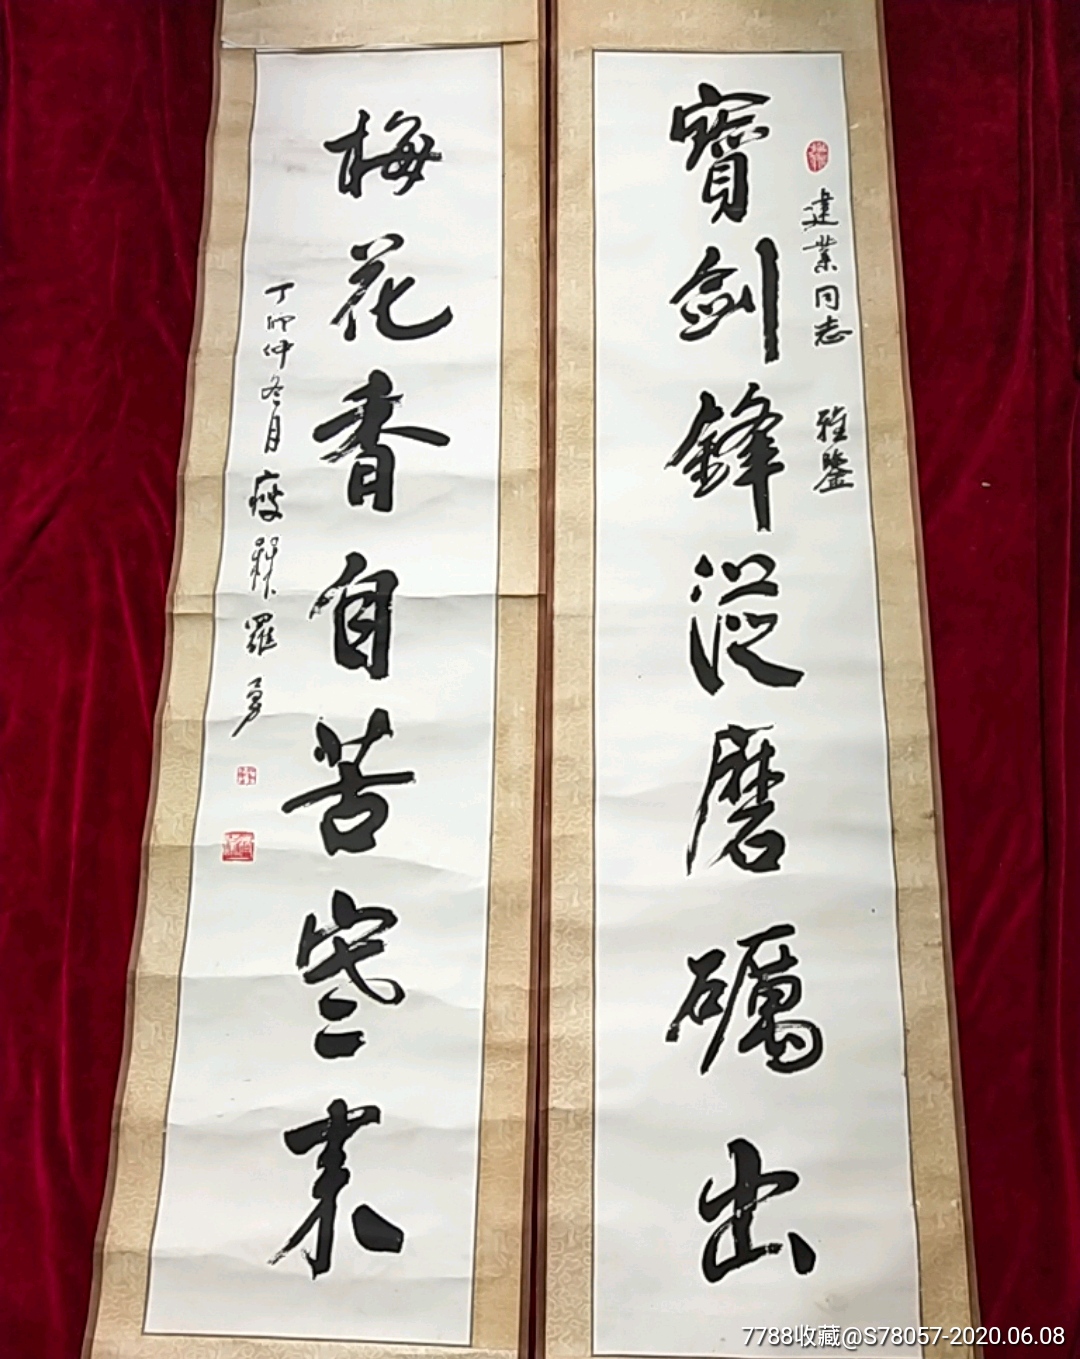 建業同志 雅鑒
寶劍鋒從磨礪出
梅花香自苦寒来
丁卯仲冬月 瘦 羅勇
7788收藏@S78057-2020.06.08